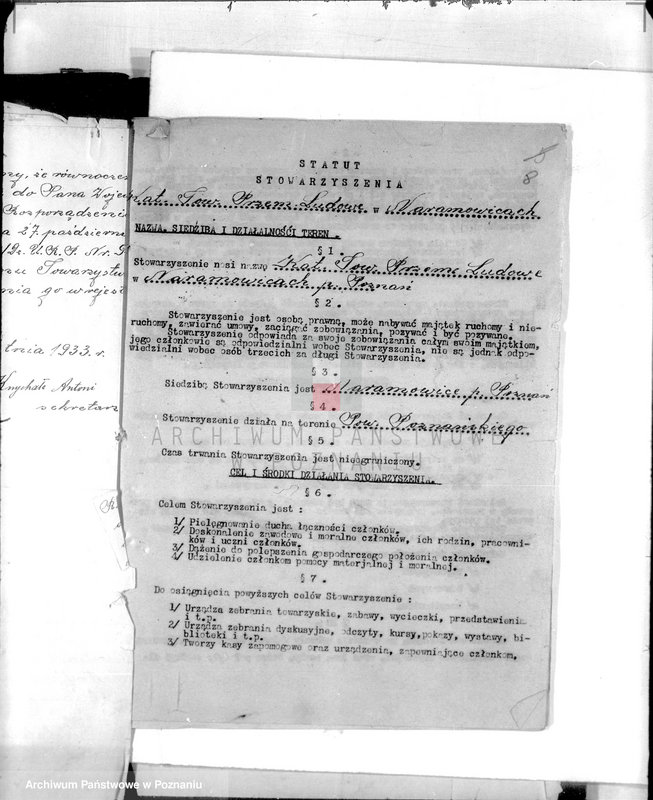 ny, że równocześ
do Pana Wojew
Rozporządzenie
a 27. październ
nia go w rejest
tnia 1933. r.
Knychała Antoni
sekretarz
8
STATUT
STOWARZYSZENIA
Kat. Tow. Przem. Ludowe w Naramowicach
NAZWA, SIEDZIBA I DZIAŁALNOŚCI TEREN.
§ 1.
Stowarzyszenie nosi nazwę Kat. Tow. Przem. Ludowe
w Naramowicach p. Poznań
§ 2.
Stowarzyszenie jest osobą prawną, może nabywać majątek ruchomy i nie-
ruchomy, zawierać umowy, zaciągać zobowiązania, pozywać i być pozywane.
Stowarzyszenie odpowiada za swoje zobowiązania całym swoim majątkiem,
jego członkowie są odpowiedzialni wobec Stowarzyszenia, nie są jednak odpo-
wiedzialni wobec osób trzecich za długi Stowarzyszenia.
§ 3.
Siedzibą Stowarzyszenia jest Naramowice p. Poznań
§ 4.
Stowarzyszenie działa na terenie Pow. Poznańskiego
ARCHIWUM PAŃSTWOWE
W POZNANIU
§ 5.
Czas trwania Stowarzyszenia jest nieograniczony.
CEL I ŚRODKI DZIAŁANIA STOWARZYSZENIA.
§ 6.
Celem Stowarzyszenia jest :
1/ Pielęgnowanie ducha łączności członków.
2/ Doskonalenie zawodowe i moralne członków, ich rodzin, pracowni-
ków i uczni członków.
3/ Dążenie do polepszenia gospodarczego położenia członków.
4/ Udzielenie członkom pomocy materjalnej i moralnej.
§ 7.
Do osiągnięcia powyższych celów Stowarzyszenie :
1/ Urządza zebrania towarzyskie, zabawy, wycieczki, przedstawienia
i t.p.
2/ Urządza zebrania dyskusyjne, odczyty, kursy, pokazy, wystawy, bi-
blioteki i t.p.
3/ Tworzy kasy zapomogowe oraz urządzenia, zapewniające członkom,
Archiwum Państwowe w Poznaniu